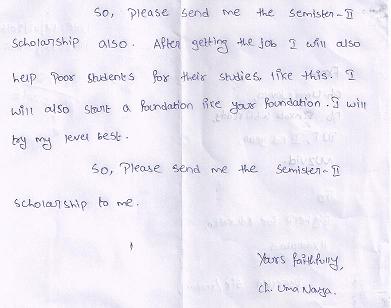 So, please send me the semister-II
scholarship also. After getting the job I will also
help poor students for their studies, like this. I
will also start a foundation like your foundation. I will
try my level best.
So, Please send me the semister-II
scholarship to me.
Yours faithfully,
Ch. Uma Naga.